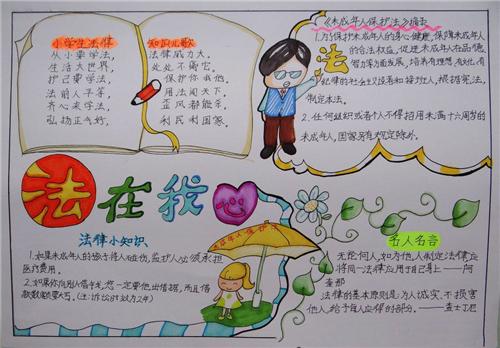 小学生法律
从小要学法,
生活大世界,
护己要学法,
法前人平等,
齐心来学法,
弘扬正气好。
知识儿歌
法律威力大。
处处不离它。
保护你我他。
用法闯天下,
歪风都能杀。
利民利国家。
《未成年人保护法》摘录
1.为保护未成年人的身心健康,保障未成年人
的合法权益,促进未成年人在品德、
智力等方面发展,培养有理想、有文化、有
纪律的社会主义接班人,根据宪法,
制定本法。
2.任何组织或者个人不得招用未满十六周岁的
未成年人,国家另有规定除外。
法
法在我心
法律小知识
1.如果未成年的孩子将人咬伤,监护人必须承担
医疗费用。
2.如果你向别人借年龙,您一定要他出借据,而且借
款数额要大写。(注:诉讼时效为2年)
未成年人保护
名人名言
无论何人,如为他人制定法律,应
将同一法律应用于自己身上——阿
奎那
法律的基本原则是:为人诚实,不损害
他人,给予每人应得的部分。——查士丁尼